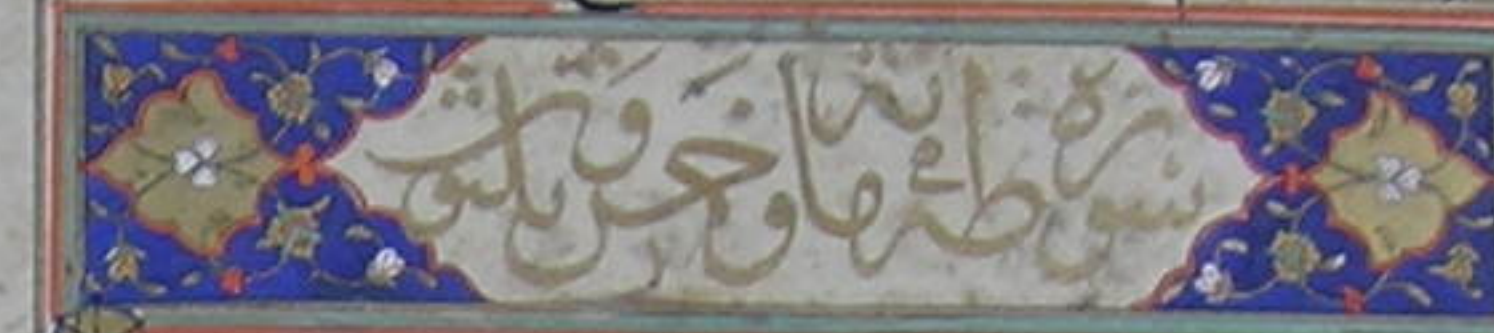 سورة طه مائة و خمس و ثلثون